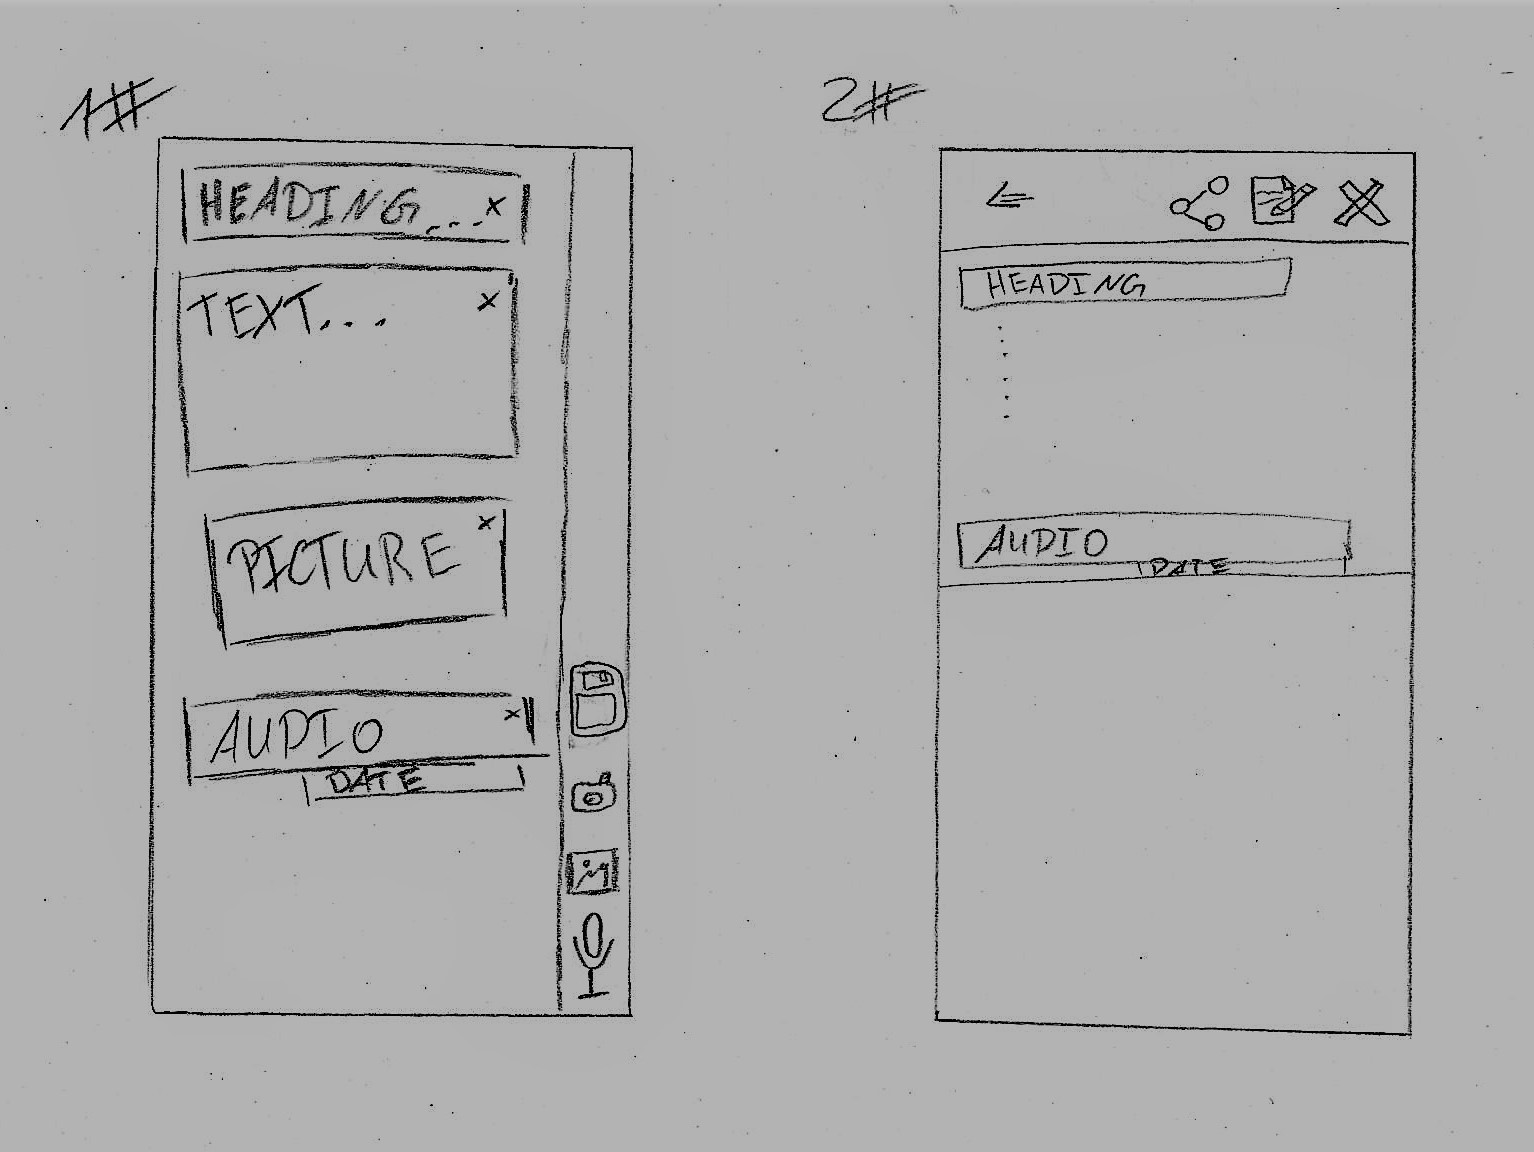 1#
HEADING... x
TEXT... x
PICTURE x
AUDIO x
DATE
2#
HEADING
AUDIO
DATE